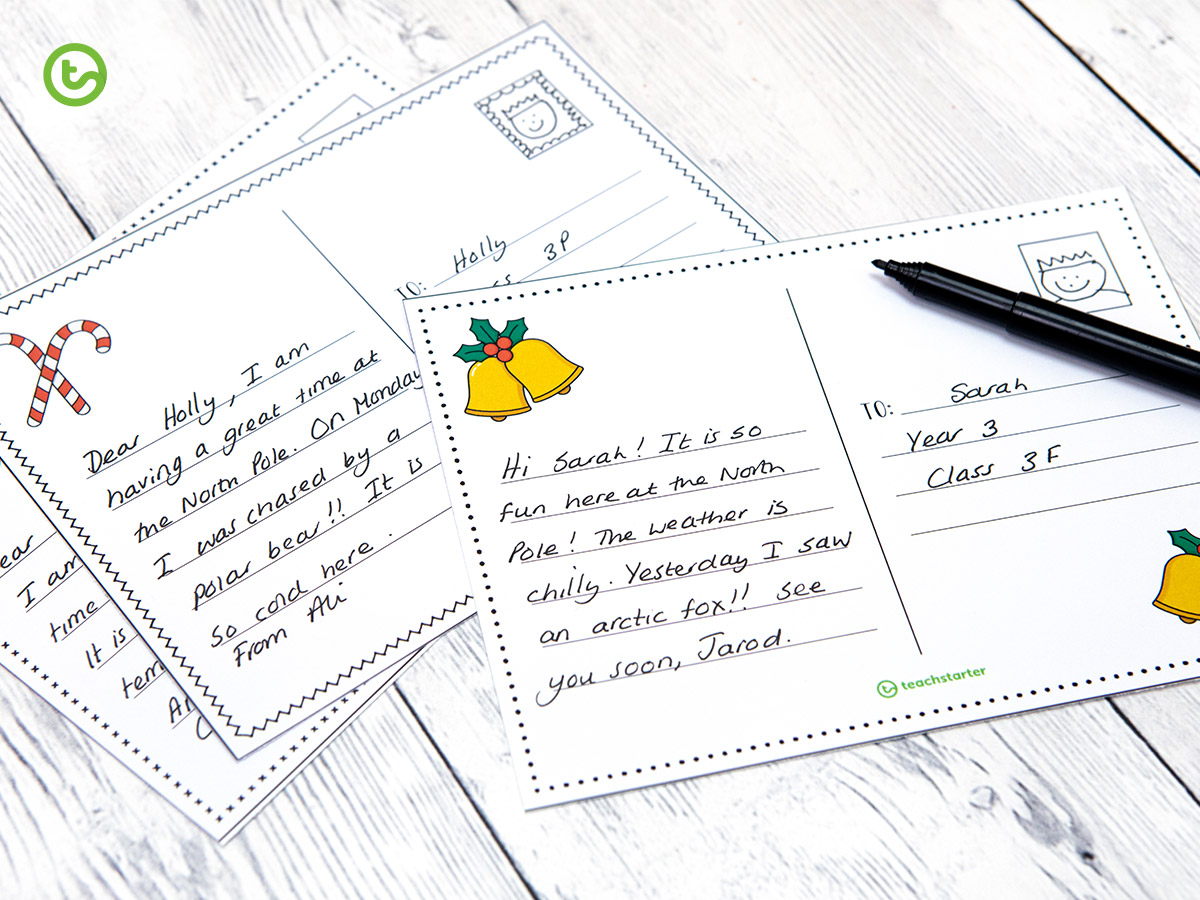 Dear Holly, I am
having a great time at
the North Pole. On Monday
I was chased by a
polar bear!! It is
so cold here.
From Ali
TO: Holly
3P
Hi Sarah! It is so
fun here at the North
Pole! The weather is
chilly. Yesterday I saw
an arctic fox!! See
you soon, Jarod.
TO: Sarah
Year 3
Class 3F
teachstarter
I am
time
It is